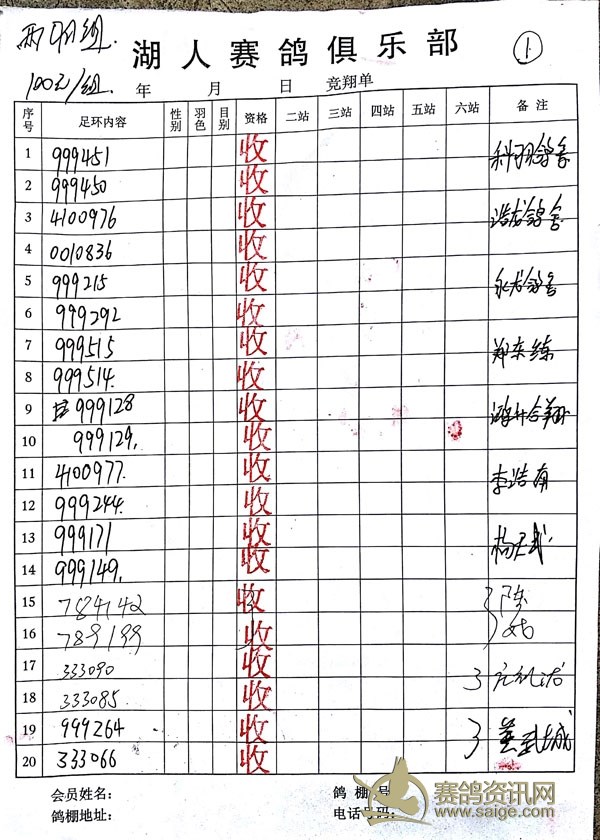 两羽组.
湖人赛鸽俱乐部
①
100元/组.
年 月 日 竞翔单
序号 足环内容 性别 羽色 目别 资格 二站 三站 四站 五站 六站 备注
1 999451 收
2 999450 收
3 4100976 收
4 0010836 收
5 999215 收
6 999292 收
7 999515 收
8 999514. 收
9 999128 收
10 999129. 收
11 4100977. 收 李浩南
12 999244. 收
13 999171 收
14 999149. 收
15 784142 收
16 789199 收
17 333090 收
18 333085. 收
19 999264 收
20 333066 收
会员姓名: 鸽棚号
鸽棚地址: 电话号码:
赛鸽资讯网
www.saige.com